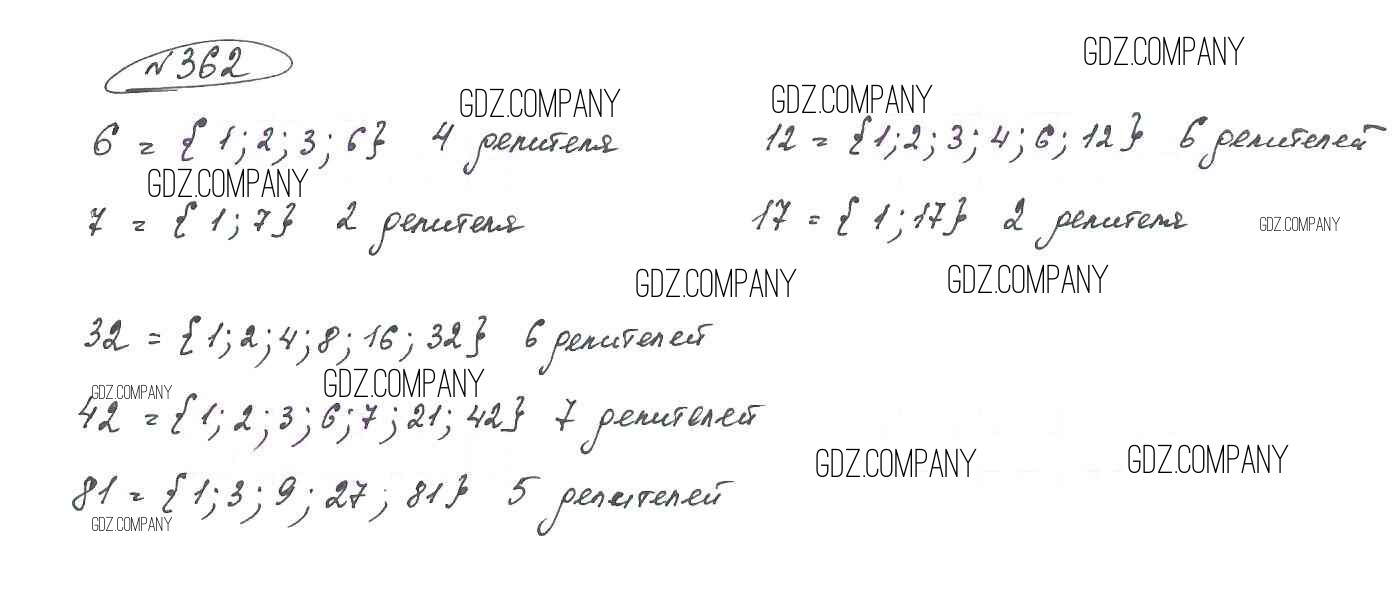 №362
GDZ.COMPANY
GDZ.COMPANY
GDZ.COMPANY
6 = {1; 2; 3; 6} 4 делителя
12 = {1; 2; 3; 4; 6; 12} 6 делителей
GDZ.COMPANY
7 = {1; 7} 2 делителя
17 = {1; 17} 2 делителя
GDZ.COMPANY
GDZ.COMPANY
GDZ.COMPANY
32 = {1; 2; 4; 8; 16; 32} 6 делителей
GDZ.COMPANY
GDZ.COMPANY
42 = {1; 2; 3; 6; 7; 21; 42} 7 делителей
GDZ.COMPANY
GDZ.COMPANY
81 = {1; 3; 9; 27; 81} 5 делителей
GDZ.COMPANY